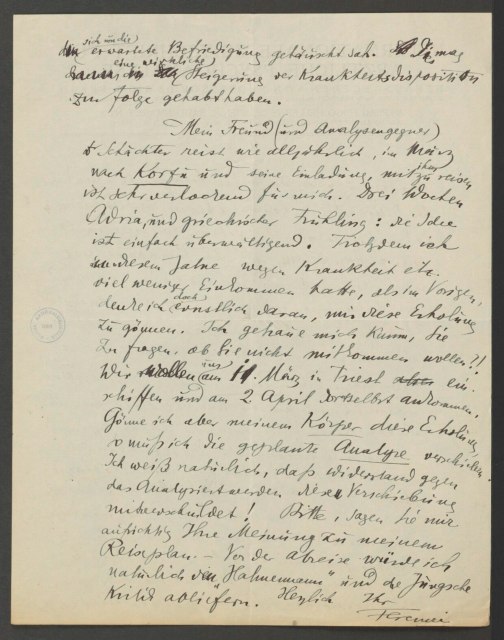 sich um die
erwartete Befriedigung getäuscht sah. Dies mag
eine wirkliche
Steigerung der Krankheitsdisposition
zur Folge gehabt haben.
Mein Freund (und Analysengegner)
Schächter reist wie alljährlich, im März
nach Korfu und seine Einladung, mit ihm zu reisen
ist sehr verlockend für mich. Drei Wochen
Adria, und griechischer Frühling: die Idee
ist einfach überwältigend. Trotzdem ich
in diesem Jahre wegen Krankheit etc.
viel weniger Einkommen hatte, als im Vorigen,
denke ich doch ernstlich daran, mir diese Erholung
zu gönnen. Ich getraue mich kaum, Sie
zu fragen, ob Sie nicht mitkommen wollen?!
Wir wollen uns am 11. März in Triest ein-
schiffen und am 2. April dortselbst ankommen.
Gönne ich aber meinem Körper diese Erholung,
so muß ich die geplante Analyse verschieben.
Ich weiß natürlich, daß Widerstand gegen
das Analysiertwerden diese Verschiebung
mitverschuldet! Bitte, sagen Sie mir
aufrichtig Ihre Meinung zu meinem
Reiseplan. – Vor der Abreise würde ich
natürlich den "Hahnemann" und die Jungsche
Kritik abliefern. Herzlich Ihr
Ferenczi